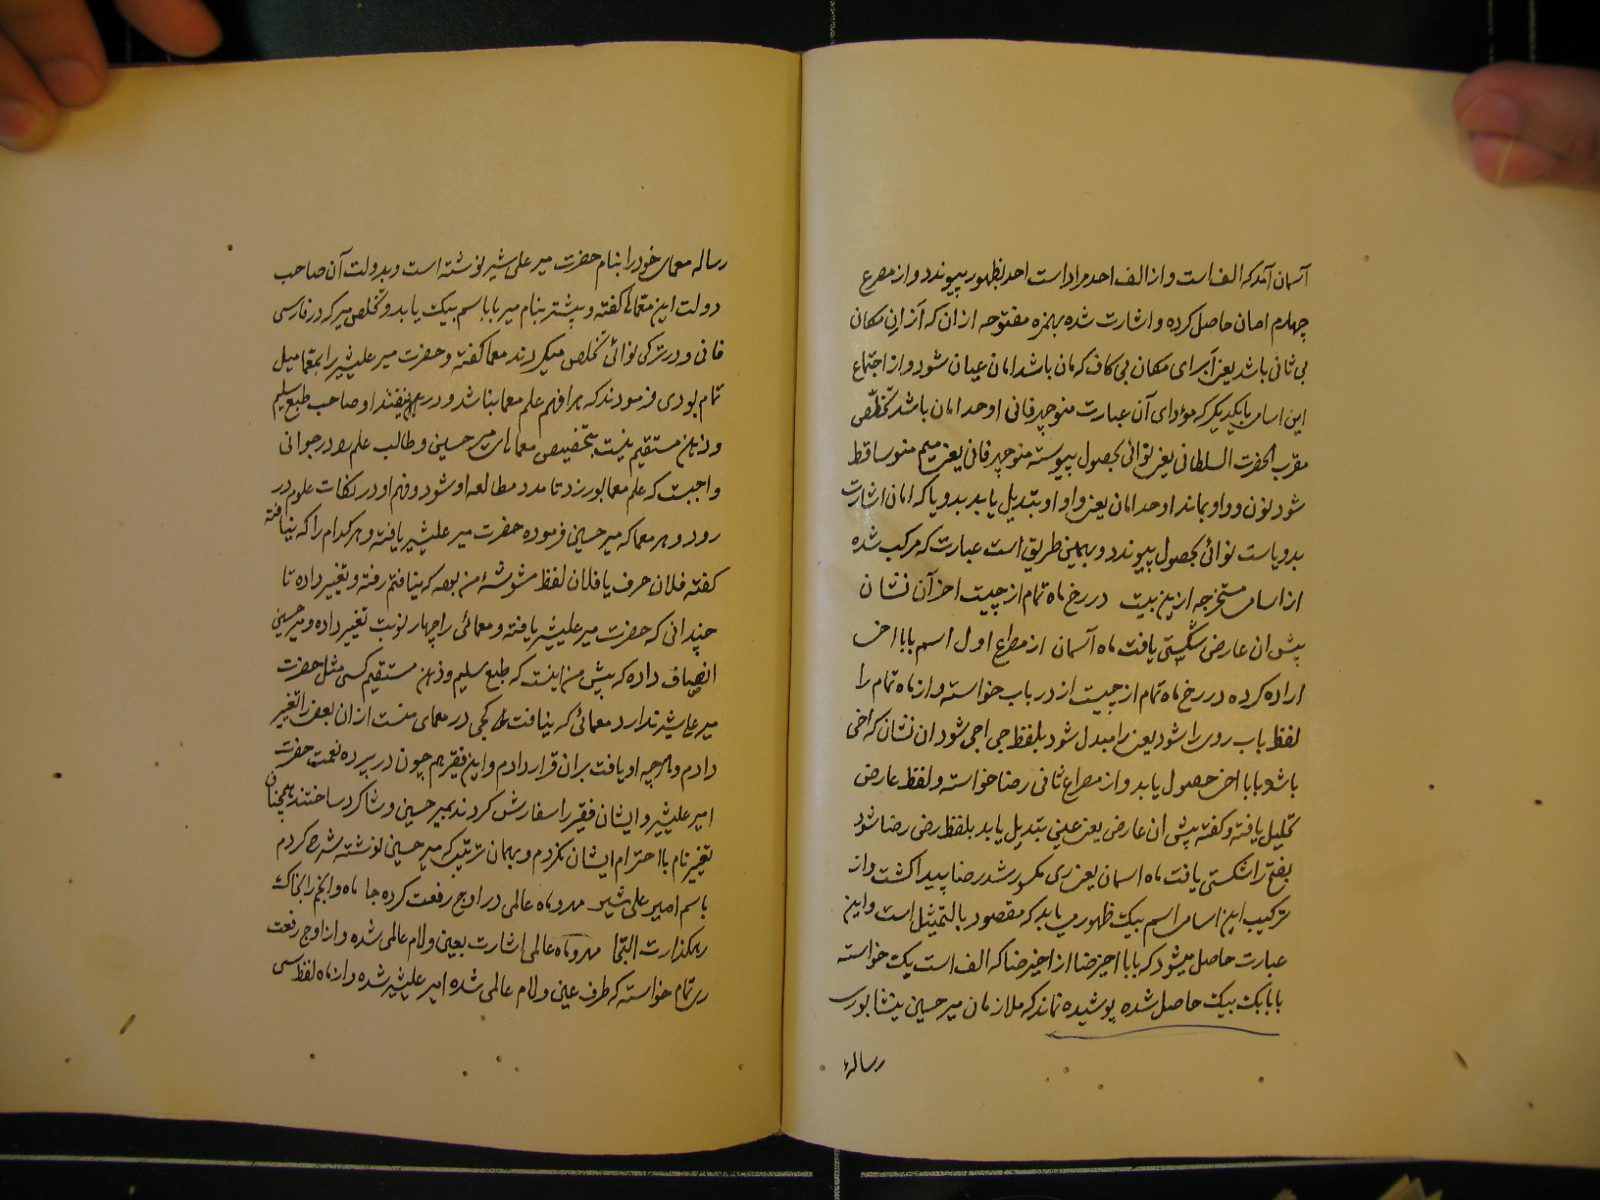 آسمان آمد که الف است و از الف احد مراد است احد بظهور پیوندد و از مصرع
چهارم امان حاصل کرده و اشارت شده بهمزه مفتوحه از ان که آز ان مکان
بی ثانی باشد یعنی آ برای مکان بی کاف که مان باشد امان عیان شود و از اجتماع
این اسامی با یکدیگر که مؤدای آن عبارت منوچهر فانی اوحد امان باشد تخلّص
مقرب الحضرت السلطانی یعنی نوائی بحصول پیوسته منوچهر فانی یعنی میم منو ساقط
شود نون و واو بماند اوحد امان یعنی واو او بتبدیل یابد بدو یا که امان اشارت
بدو یاست نوائی بحصول پیوندد و بهمین طریق است عبارت که مرکب شده
از اسامی مستخرجه ازین بیت در رخ ماه تمام از چیت اخر آن نشان
پیش ان عارض شکستی یافت ماه آسمان از مصراع اول اسم بابا اخی
اراده کرده در رخ ماه تمام از چیت از در باب خواسته و از ماه تمام را
لفظ باب روی را شود یعنی را مبدل شود بلفظ جی اجی شود ان نشان که اخی
باشد و بابا اخی حصول یابد و از مصراع ثانی رضا خواسته و لفظ عارض
تحلیل یافته و گفته پیش ان عارض یعنی عین بتبدیل یابد بلفظ رض رضا شود
بفتح را شکستی یافت ماه اسمان یعنی ری مکسور شد رضا پیدا گشت و از
ترکیب این اسامی اسم بیک ظهور می یابد که مقصود بالتمثیل است و این
عبارت حاصل میشود که بابا اخی رضا از اخی رضا که الف است یک خواسته
با بابک بیک حاصل شده پوشیده نماند که ملازمان میر حسین نیشابوری
رساله
رساله معمای خود را بنام حضرت میر علی شیر نوشته است و بدولت آن صاحب
دولت این معماها گفته و بیشتر بنام میر بابا اسم بیک یابد و تخلص میر که در فارسی
فانی و در ترکی نوائی تخلص میکردند معما گفته و حضرت میر علیشیر را بمعما میل
تمام بودی فرمودند که هر افهم علم معما نباشد و در بهم نیفتد او صاحب طبع سلیم
و ذهن مستقیم نیست بتخصیص معماهای میر حسین و طالب علم را در جوانی
واجبست که علم معما بورزد تا مدد مطالعه او شود و فهم او در نکات علوم در
رود و هر معما که میر حسین فرموده حضرت میر علیشیر یافته و هر کدام را که نیافته
گفته فلان حرف یا فلان لفظ مشوشهٔ من بوده که نیافتم رفته و تغییر داده تا
چندانی که حضرت میر علیشیر یافته و معمائی را چهار نوبت تغییر داده و میر حسین
انصاف داده که پیش من اینست که طبع سلیم و ذهن مستقیم کسی مثل حضرت
میر علیشیر ندارد معمائی که نیافت کجی در معمای منست از ان بعضی را تغییر
دادم و هر چه او یافت بران قرار دادم و این فقیر هم چون در پرده نعمت حضرت
امیر علیشیر و ایشان فقیر را سفارش کردند بمیر حسین و شاگرد ساختند همچنان
تغییر نام با احترام ایشان نکردم و بهمان ترتیب که میر حسین نوشته شرح کردم
باسم امیر علی شیر مهر و ماه عالمی در اوج رفعت کرده جا ماه و انجم را بخاک
رهگذارت التجا مهر و ماه عالمی اشارت بعین و لام عالمی شده و از اوج رفعت
ری تمام خواسته که طرف عین و لام عالمی شده امیر علیشیر شده و از ماه لفظ سی